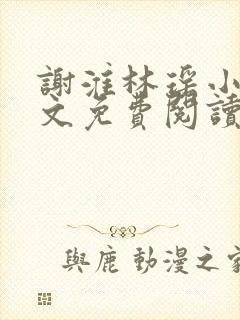 謝淮林瑶小
文免費閱讀
與鹿動漫之家